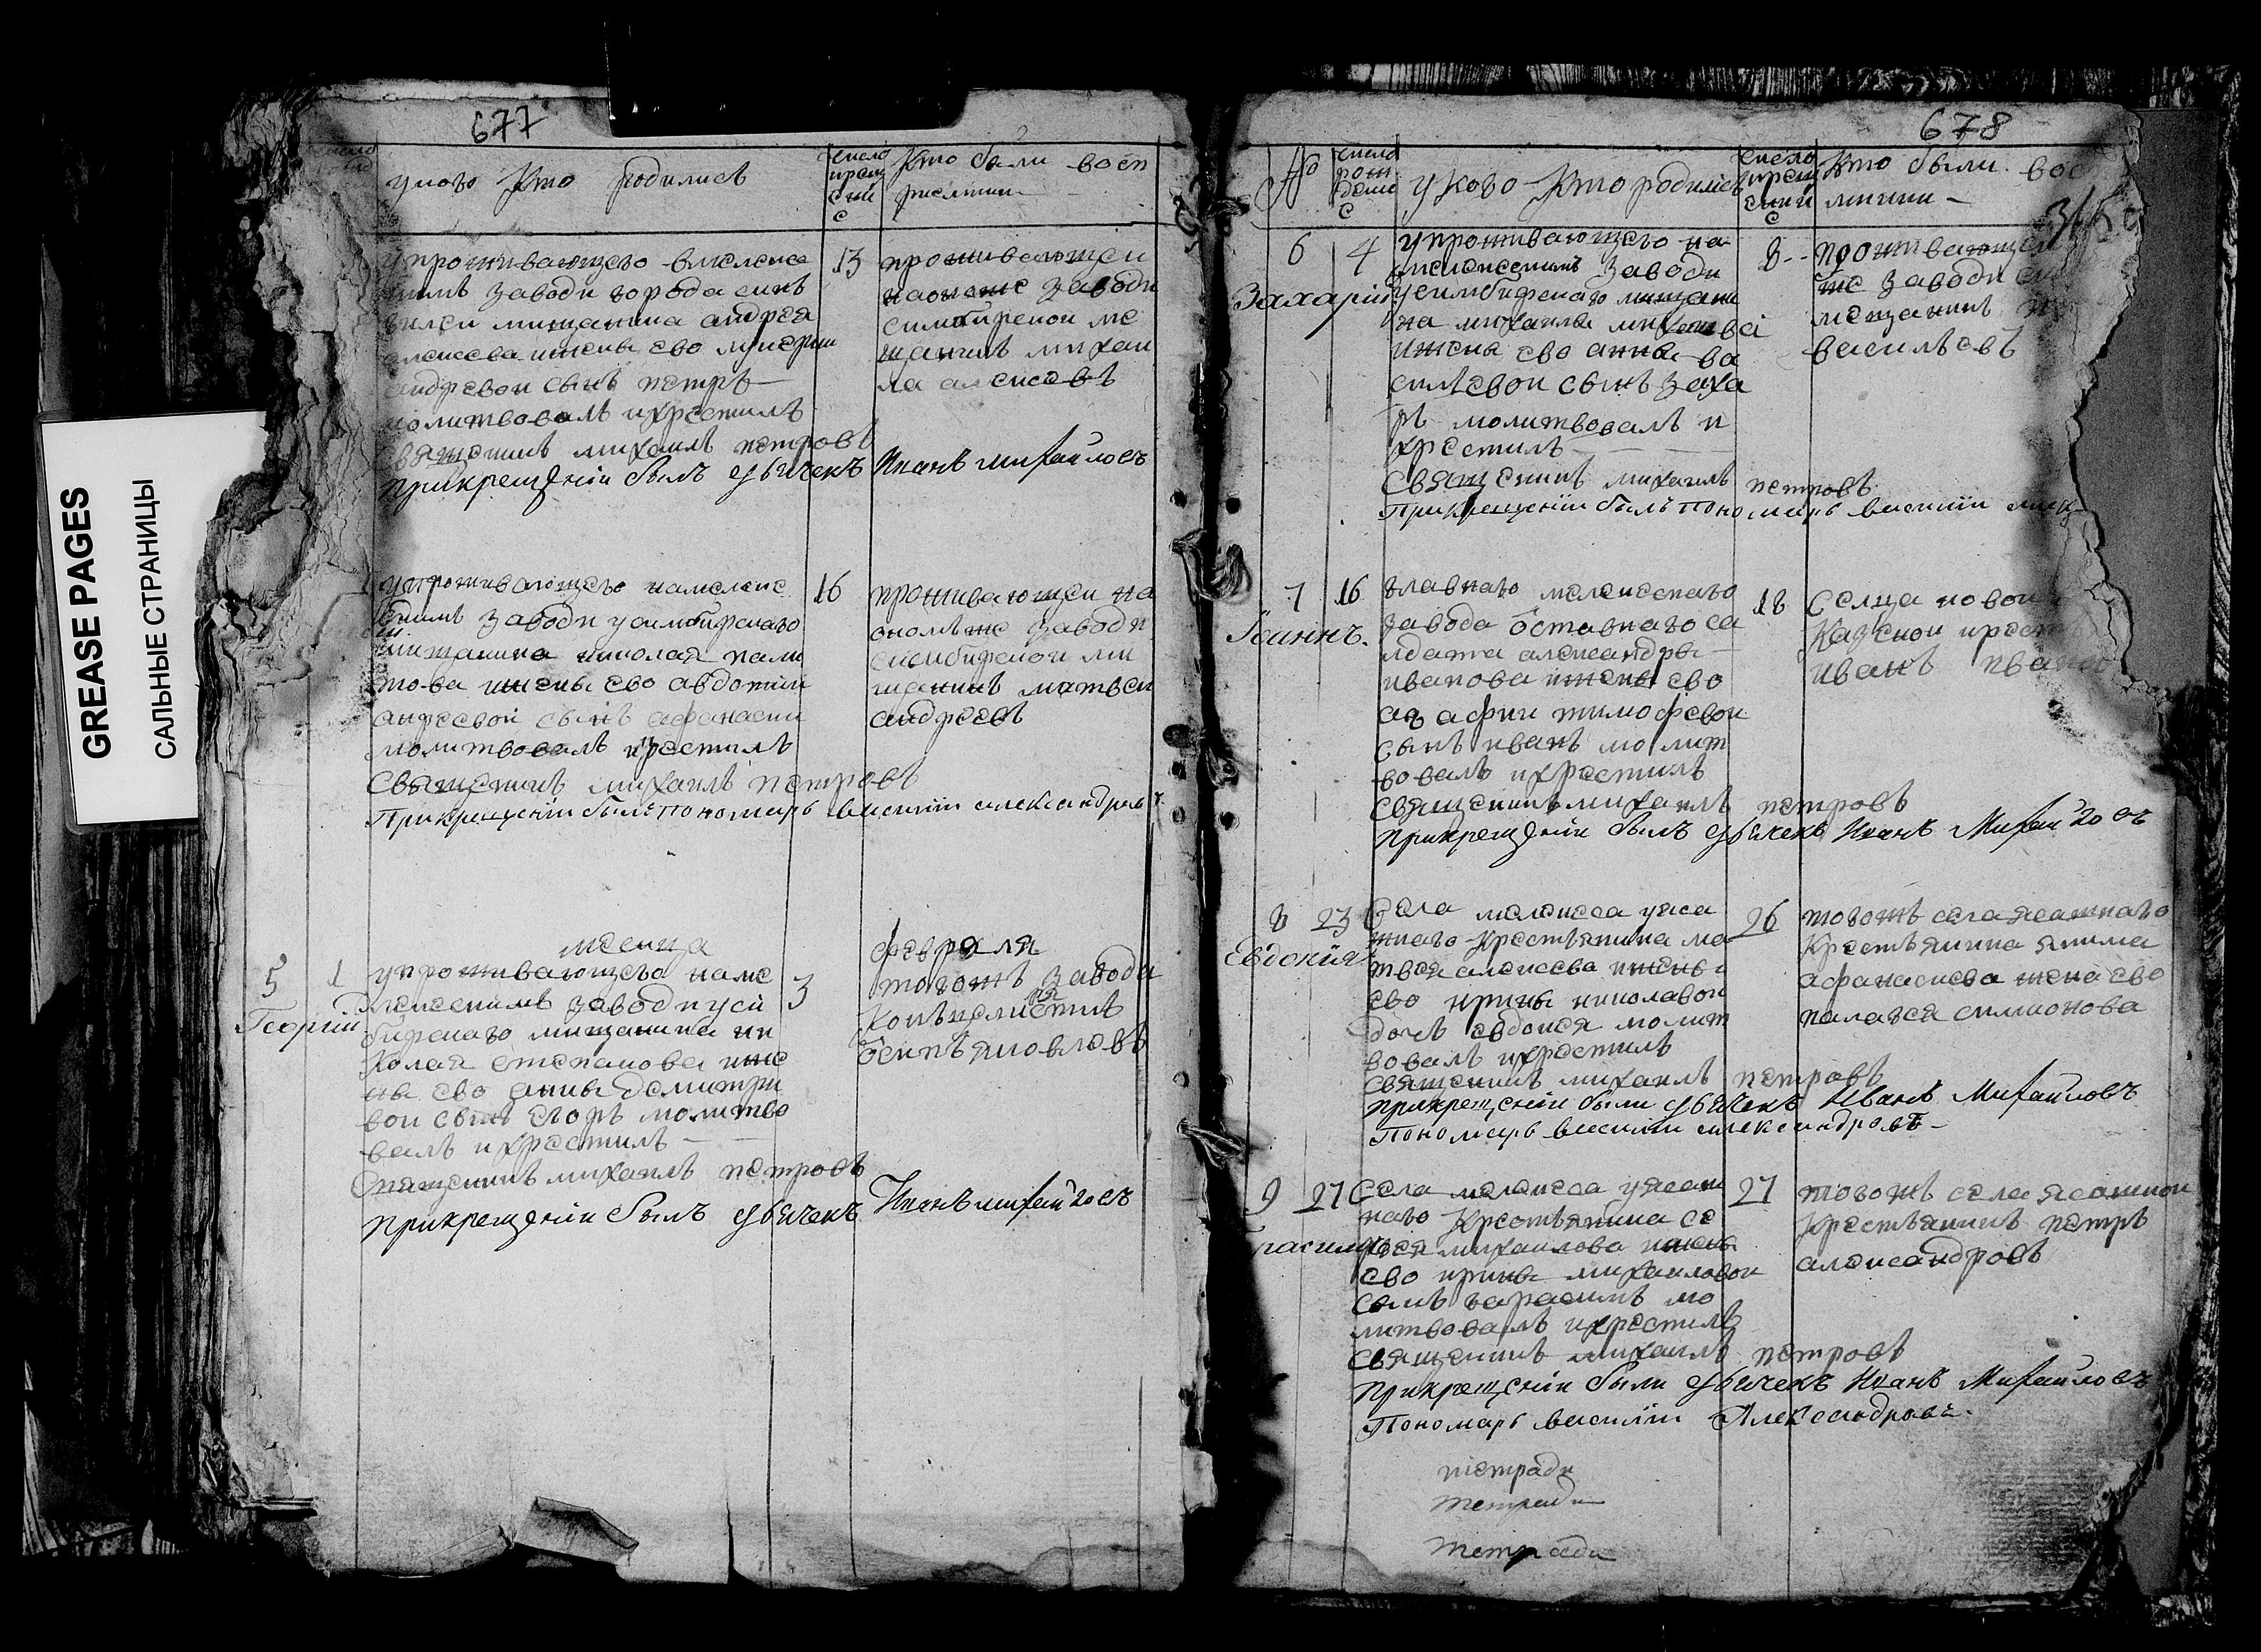 GREASE PAGES
САЛЬНЫЕ СТРАНИЦЫ
677
число
уково Кто родились
число
крещ
ений
с
Кто были восп
риемники
упроживающего вмелекес
скимъ заводи города симъ
мищанина андрея
алексеева ижены его
андревои сынъ петръ
молитвовалъ ихрестилъ
священникъ михаилъ петровъ
Прикрещении былъ дьячекъ Иванъ михайловъ
13
проживающеи
наономже заводи
симбирскои ме
щанинъ михаи
ла алексеевъ
упроживающего намелекес
скимъ заводи усимбирского
мищанина николая
това ижены его авдотии
андреевои сынъ афанасии
молитвовалъ ихрестилъ
священникъ михаилъ петровъ
Прикрещении былъ пономарь василии александровъ
16
проживающеи на
ономъже заводи
симбирскои ми
щанинъ матвеи
андреевъ
месица февраля
5
1
Георгии
упроживающего наме
лекескимъ заводи усим
бирского мищанина ни
колая степанова иже
ны его анны демитри
вои сынъ егоръ молитво
валъ ихрестилъ
Священникъ михаилъ петровъ
прикрещении былъ дьячекъ Иванъ михайловъ
3
тогожъ заводи
осипъ яковлевъ
678
№
число
рож
дени
с
уково Кто родились
число
крещ
ений
с
Кто были вос
мники
6
4
Захарии
упроживающего на
мелекескимъ заводи
усимбирского мищани
на михаила
ижены его анна ва
силевои сынъ заха
ръ молитвовалъ и
хрестилъ
Священникъ михаилъ петровъ
Прикрещении былъ пономарь василии
8
проживающеи
же заводи
мещанинъ
василевъ
7
16
Иоаннъ.
главнаго мелекескаго
завода отставнаго са
лдата александры
иванова ижены его
агафии тимофевои
сынъ иванъ молит
вовалъ ихрестилъ
священникъ михаилъ петровъ
прикрещении былъ дьячекъ Иванъ Михайловъ
18
Селца новои
Казенои крест
иванъ иванов
8
23
Евдокия
Села мелекеса уяса
шнаго крестьянина ма
твея алексеева ижены
его ирины николавои
дочь евдокея молит
вовалъ ихрестилъ
священникъ михаилъ петровъ
прикрещении были дьячекъ Иванъ Михайловъ
Пономарь василии александровъ
26
тогожъ села ясашнаго
Крестьянина якима
афанасиева жена его
палагея симионова
9
27
Села мелекеса уясаш
наго Крестьянина се
ргея михаилова ижены
его ирины михаиловои
сынъ гарасимъ мо
литвовалъ ихрестилъ
священникъ михаилъ петровъ
прикрещении были дьячекъ Иванъ Михайловъ
Пономарь василии Александровъ.
27
тогожъ села ясашнои
Крестьянинъ петръ
александровъ
тетради
тетради
тетради